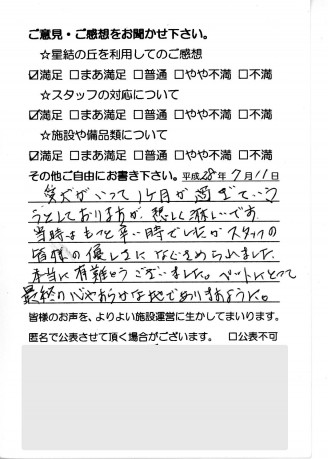 ご意見・ご感想をお聞かせ下さい。
☆星結の丘を利用してのご感想
☑満足 □まあ満足 □普通 □やや不満 □不満
☆スタッフの対応について
☑満足 □まあ満足 □普通 □やや不満 □不満
☆施設や備品類について
☑満足 □まあ満足 □普通 □やや不満 □不満
その他ご自由にお書き下さい。平成28年7月11日
愛犬がいって1ヶ月が過ぎていこ
うとしておりますが、悲しく淋しいです。
当時はもっと辛い時でしたがスタッフの
皆様の優しさになぐさめられました。
本当に有難うございました。ペットにとって
最終の心やすらげな地でありますように。
皆様のお声を、よりよい施設運営に生かしてまいります。
匿名で公表させて頂く場合がございます。 □公表不可